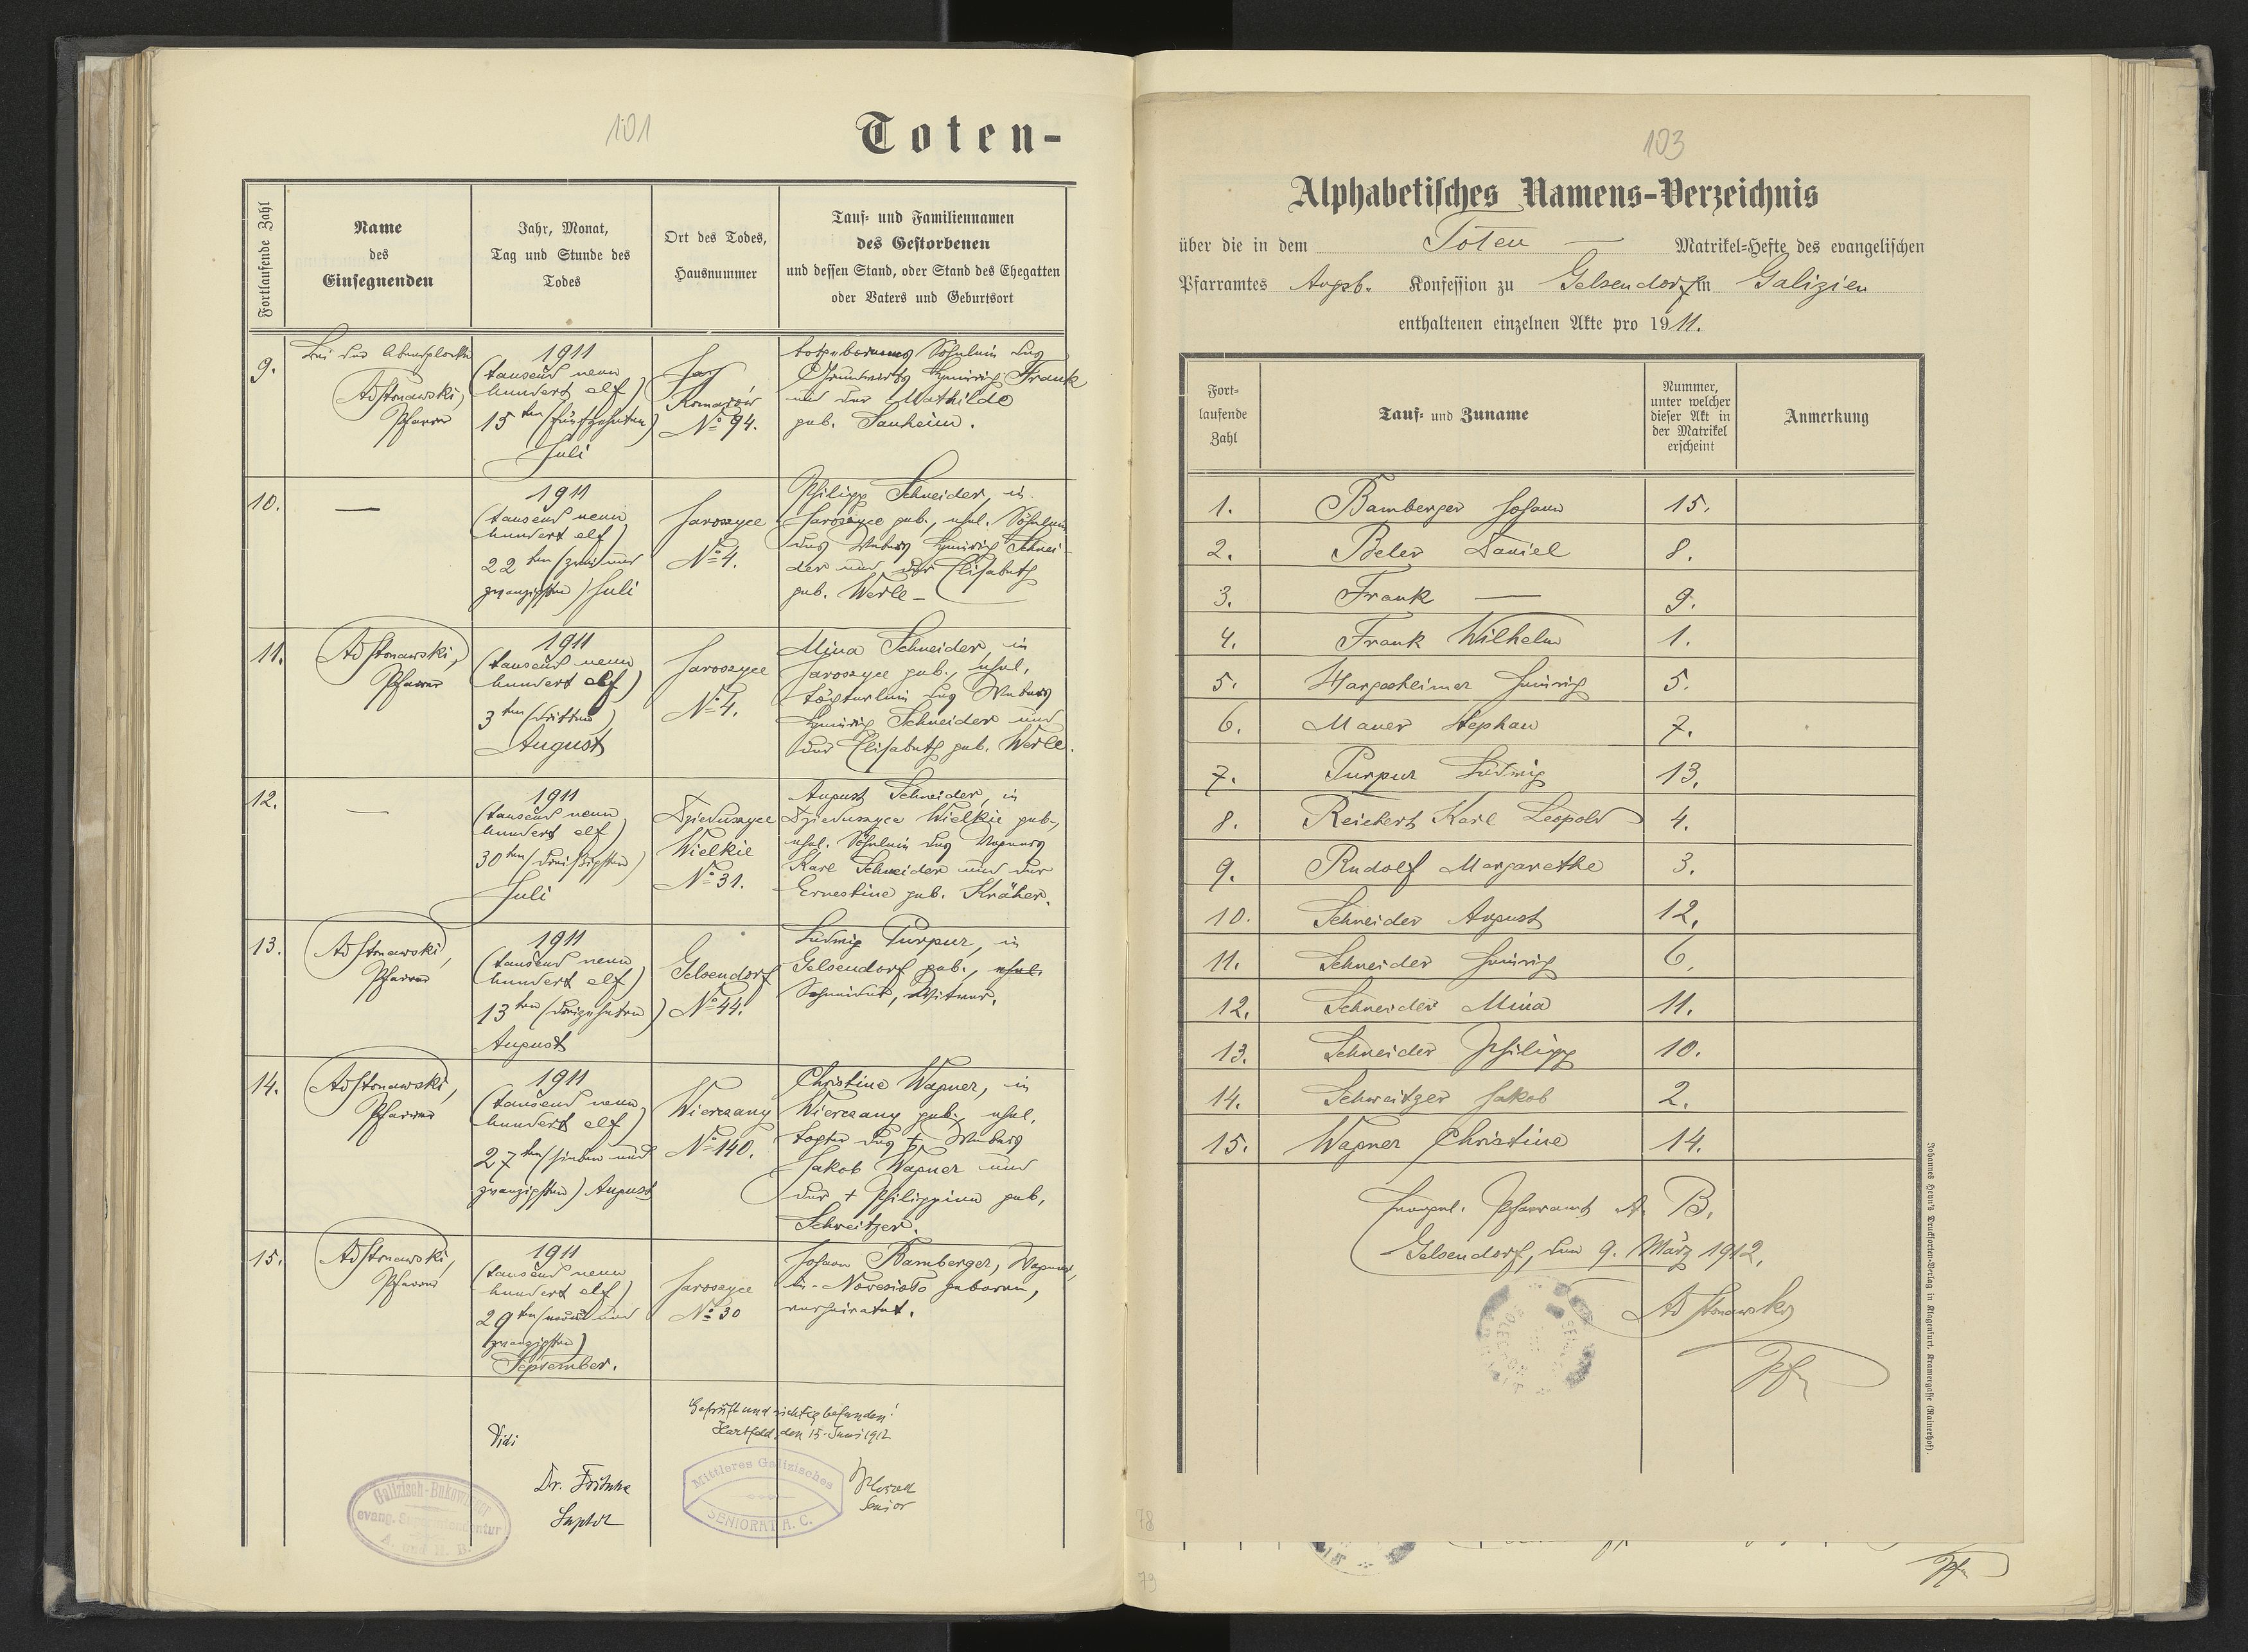 101
Toten-
Fortlaufende Zahl
Name
des
Einsegnenden
Jahr, Monat,
Tag und Stunde des
Todes
Ort des Todes,
Hausnummer
Tauf- und Familiennamen
des Gestorbenen
und dessen Stand, oder Stand des Ehegatten
oder Vaters und Geburtsort
9.
Pfarrer
1911
(tausend neun
hundert elf)
15ten (fünfzehnten)
Juli
Komarów
No 94.
totgeborenes Söhnlein des
Grundwirts Heinrich Frank
und der Mathilde
geb. Sauheim.
10.
—
1911
(tausend neun
hundert elf)
22ten (zwei und
zwanzigsten) Juli
Jaroszyce
No 4.
Philipp Schneider, in
Jaroszyce geb., ehel. Söhnlein
des Webers Heinrich Schnei-
der und der Elisabeth
geb. Werle –
11.
Pfarrer
1911
(tausend neun
hundert elf)
3ten (dritten)
August
Jaroszyce
No 4.
Mina Schneider in
Jaroszyce geb., ehel.
Töchterlein des Webers
Heinrich Schneider und
der Elisabeth geb. Werle.
12.
—
1911
(tausend neun
hundert elf)
30ten (dreißigsten)
Juli
Dzieduszyce
Wielkie
No 31.
August Schneider, in
Dzieduszyce Wielkie geb.,
ehel. Söhnlein des Wagners
Karl Schneider und der
Ernestine geb. Kräher.
13.
Pfarrer
1911
(tausend neun
hundert elf)
13ten (dreizehnten)
August
Gelsendorf
No 44.
Ludwig Purpur, in
Gelsendorf geb., ehel.
Schneider, Witwer.
14.
Pfarrer
1911
(tausend neun
hundert elf)
27ten (sieben und
zwanzigsten) August
Wierczany
No 140.
Christine Wagner, in
Wierczany geb., ehel.
Tochter des † Webers
Jakob Wagner und
der † Philippine geb.
Schweitzer.
15.
Pfarrer
1911
(tausend neun
hundert elf)
29ten (neun und
zwanzigsten)
September.
Jaroszyce
No 30
Johann Bamberger, Wagner,
in geboren,
verheiratet.
Vidi
Dr.
Suptdt
Geprüft und richtig befunden!
Hartfeld, den 15. Juni 1912
Senior
Galizisch-Bukowiner
evang. Superintendentur
A. und H. B.
Mittleres Galizisches
SENIORAT A. C.
103
Alphabetisches Namens-Verzeichnis
über die in dem Toten — Matrikel-Hefte des evangelischen
Pfarramtes Augsb. Konfession zu Gelsendorf in Galizien
enthaltenen einzelnen Akte pro 1911.
Fort-
laufende
Zahl
Tauf- und Zuname
Nummer,
unter welcher
dieser Akt in
der Matrikel
erscheint
Anmerkung
1. Bamberger Johann 15.
2. Beler Daniel 8.
3. Frank — 9.
4. Frank Wilhelm 1.
5. Hargesheimer Heinrich 5.
6. Mauer Stephan 7.
7. Purpur Ludwig 13.
8. Reichert Karl Leopold 4.
9. Rudolf Margarethe 3.
10. Schneider August 12.
11. Schneider Heinrich 6.
12. Schneider Mina 11.
13. Schneider Philipp 10.
14. Schweitzer Jakob 2.
15. Wagner Christine 14.
Evangel. Pfarramt A. B.
Gelsendorf, den 9. März 1912.
Pfr
Johannes Heyn's Drucksorten-Verlag in Klagenfurt, Kramergasse (Rainerhof).
78
79
Pfr